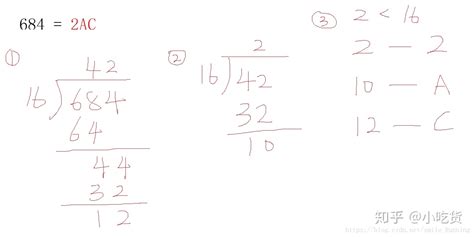 684 = 2AC
①
42
16)684
64
44
32
12
②
2
16)42
32
10
③ 2 < 16
2 — 2
10 — A
12 — C
知乎 @小吃货